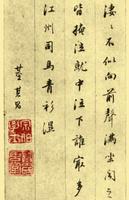 凄〻不似向前聲滿坐聞之
皆掩泣就中泣下誰寂多
江州司馬青衫濕
董其昌